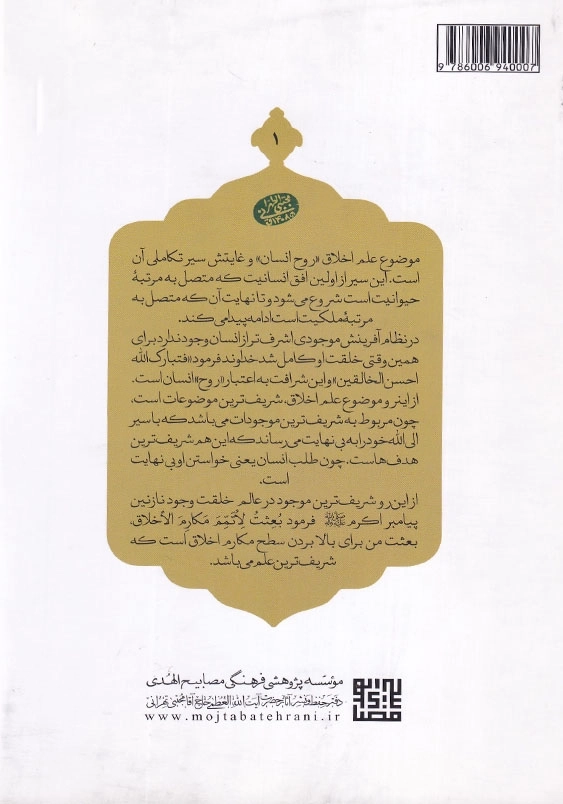 9 786006 940007
۱
موضوع علم اخلاق «روح انسان» و غایتش سیر تکاملی آن
است. این سیر از اولین افق انسانیت که متصل به مرتبهٔ
حیوانیت است شروع می‌شود و تا نهایت آن که متصل به
مرتبهٔ ملکیت است ادامه پیدا می‌کند.
در نظام آفرینش موجودی اشرف‌تر از انسان وجود ندارد برای
همین وقتی خلقت او کامل شد خداوند فرمود «فتبارک الله
احسن الخالقین» و این شرافت به اعتبار «روح» انسان است.
از اینرو موضوع علم اخلاق، شریف‌ترین موضوعات است،
چون مربوط به شریف‌ترین موجودات می‌باشد که با سیر
الی الله خود را به بی نهایت می‌رساند که این هم شریف‌ترین
هدف‌هاست، چون طلب انسان یعنی خواستن او بی نهایت
است.
از این رو شریف‌ترین موجود در عالم خلقت وجود نازنین
پیامبر اکرم ﷺ فرمود بُعِثتُ لِأُتَمِّمَ مَکارِمَ الأخلاق،
بعثت من برای بالا بردن سطح مکارم اخلاق است که
شریف‌ترین علم می‌باشد.
مؤسسه پژوهشی فرهنگی مصابیح الهدی
دفتر حفظ و نشر آثار حضرت آیت الله العظمی حاج آقا مجتبی تهرانی
www.mojtabatehrani.ir